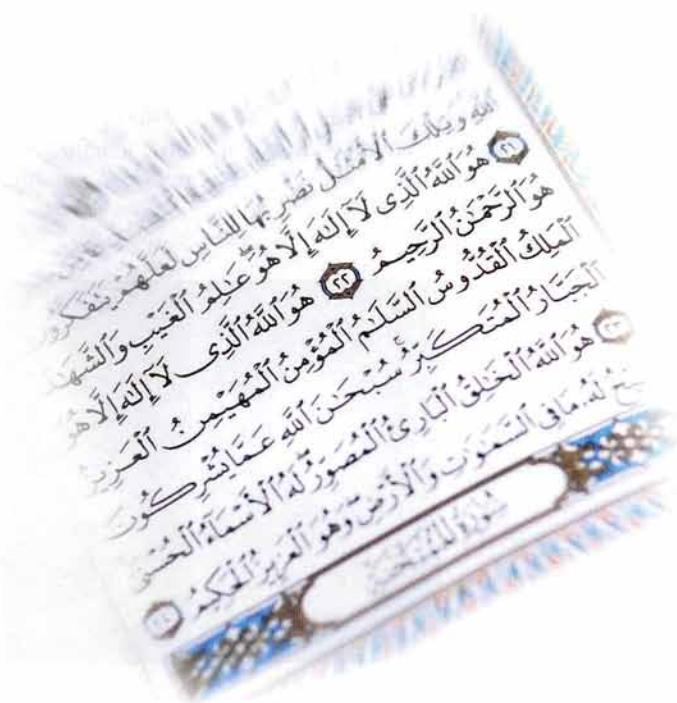 ٱللَّهِ وَتِلْكَ ٱلْأَمْثَٰلُ نَضْرِبُهَا لِلنَّاسِ لَعَلَّهُمْ يَتَفَكَّرُونَ
٢١ هُوَ ٱللَّهُ ٱلَّذِى لَآ إِلَٰهَ إِلَّا هُوَ عَٰلِمُ ٱلْغَيْبِ وَٱلشَّهَٰدَ
هُوَ ٱلرَّحْمَٰنُ ٱلرَّحِيمُ ٢٢ هُوَ ٱللَّهُ ٱلَّذِى لَآ إِلَٰهَ إِلَّا هُوَ
ٱلْمَلِكُ ٱلْقُدُّوسُ ٱلسَّلَٰمُ ٱلْمُؤْمِنُ ٱلْمُهَيْمِنُ ٱلْعَزِيزُ
ٱلْجَبَّارُ ٱلْمُتَكَبِّرُ ۚ سُبْحَٰنَ ٱللَّهِ عَمَّا يُشْرِكُونَ
٢٣ هُوَ ٱللَّهُ ٱلْخَٰلِقُ ٱلْبَارِئُ ٱلْمُصَوِّرُ ۖ لَهُ ٱلْأَسْمَآءُ ٱلْحُسْنَ
بِّحُ لَهُۥ مَا فِى ٱلسَّمَٰوَٰتِ وَٱلْأَرْضِ ۖ وَهُوَ ٱلْعَزِيزُ ٱلْحَكِيمُ ٢٤
سُورَةُ المُمْتَحنَةِ